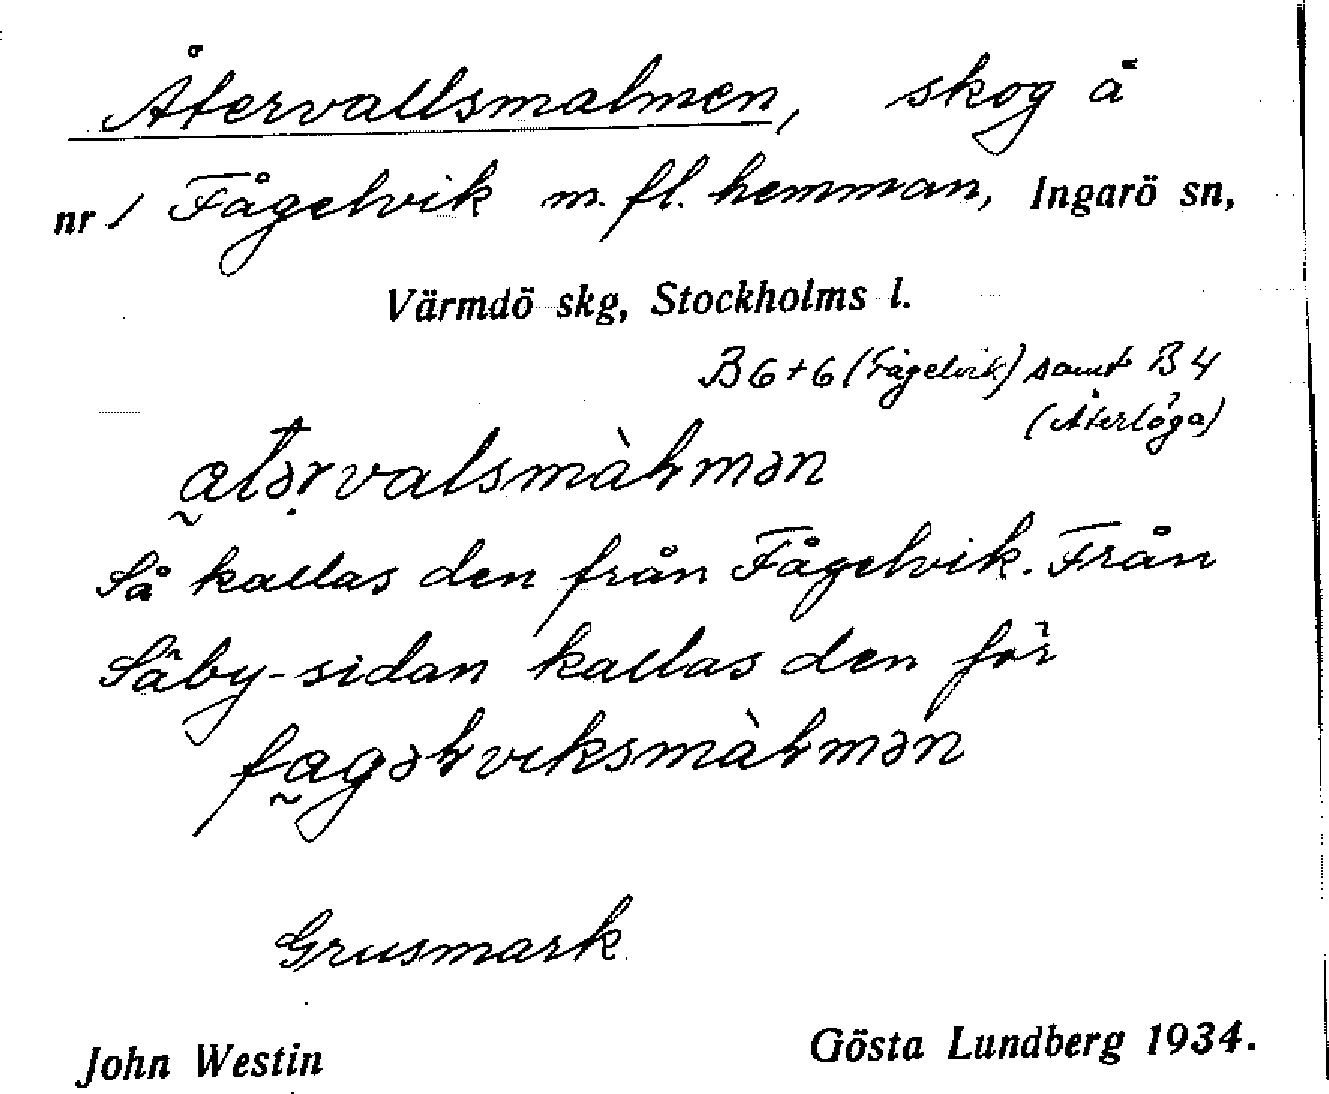 Återvallsmalmen, skog å
nr 1 Fågelvik m. fl. hemman, Ingarö sn,
Värmdö skg, Stockholms l.
B6+6 (Fågelvik) samt B4
(Återlöga)
a̰tərvalsmàlmən
Så kallas den från Fågelvik. Från
Säby-sidan kallas den för
fa̰gəlviksmàlmən
Grusmark
John Westin Gösta Lundberg 1934.